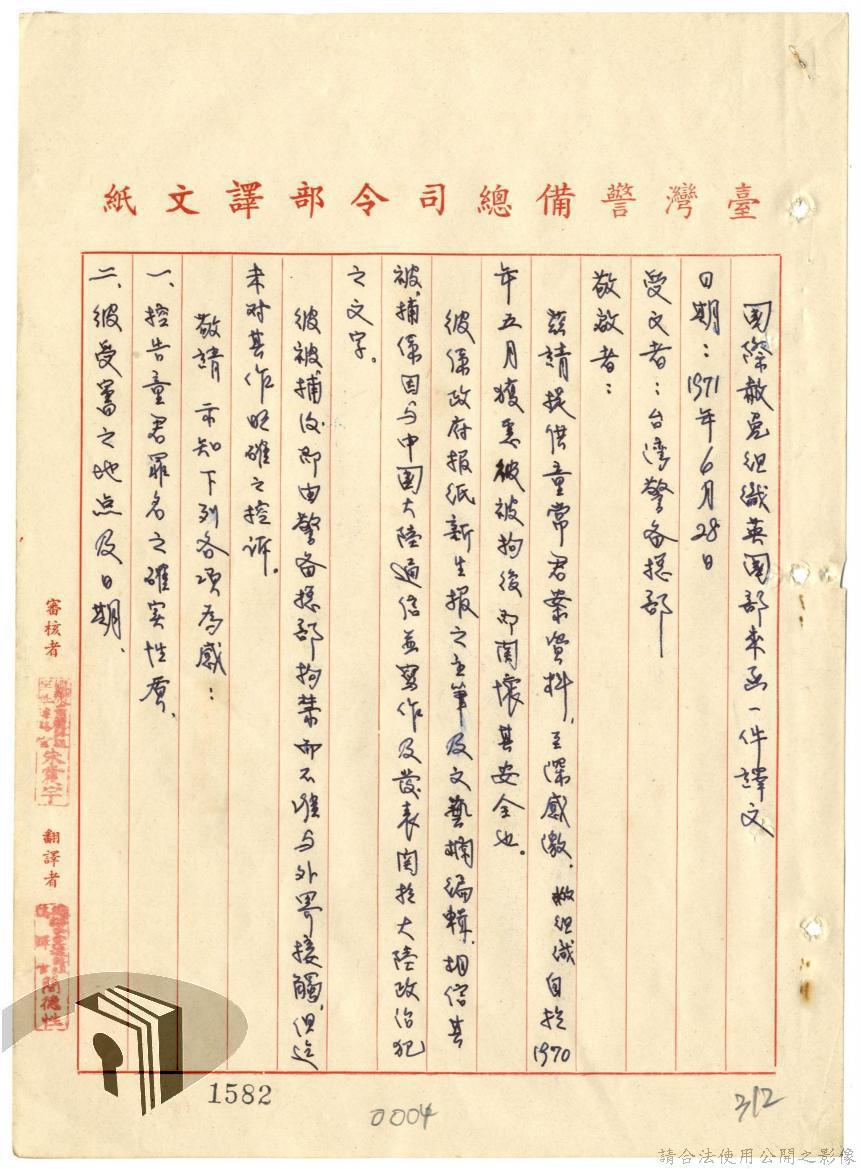 臺灣警備總司令部譯文紙
国際赦免组織英国部来函一件譯文
日期：1971年6月28日
受文者：台湾警备揔部
敬啟者：
兹請提供童常君案資料，至深感激，敝组织自於1970
年五月獲悉彼被拘後即関懷其安全也。
彼係政府报纸新生报之主筆及文藝欄编輯，相信其
被捕係因与中国大陸通信並寫作及發表関於大陸政治犯
之文字。
彼被捕後即由警备揔部拘禁而不准与外界接觸，但迄
未对其作明確之控訴。
敬請示知下列各項為感：
一、控告童君罪名之確实性質、
二、彼受審之地点及日期、
審核者
翻譯者
1582
0004
312
請合法使用公開之影像